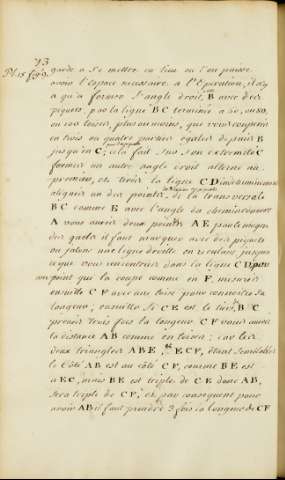 73
Pl. 15 fig 9. garde a se mettre en lieu ou l'on puisse
avoir l'espace necessaire a l'Operation, il n'y
a qu'a former l'angle droit, B avec des
piquets par la ligne BC terminée a 20, ou 50,
ou 100 toises, plus ou moins, que vous couperés
en trois ou quatre parties egales depuis B
jusqu'en C; cela fait sur son extremité C
former un autre angle droit alterne au
premier, et tirés la ligne CD indeterminement
alignés un des points de la transversale
BC comme E avec l'angle du
A vous aurés deux points AE par le moyen
des quels il faut marquer avec des piquets
ou jalons une ligne droite en reculant jusques
a que vous rencontriés dans la ligne CD par
un point qui la coupe comme en F, mesurés
ensuitte CF avec une toise pour connoitre sa
longeur, ensuitte si CE est le tiers de BC
prenés trois fois la longeur CF vous aurés
la distance AB comme en toises; car les
deux triangles ABE, et ECF, étant semblables
le Côté AB est au côté CF, comme BE est
a EC, mais BE est triple de CE donc AB,
sera triple de CF, et par consequent pour
avoir AB il faut prendre 3 fois la longeur de CF